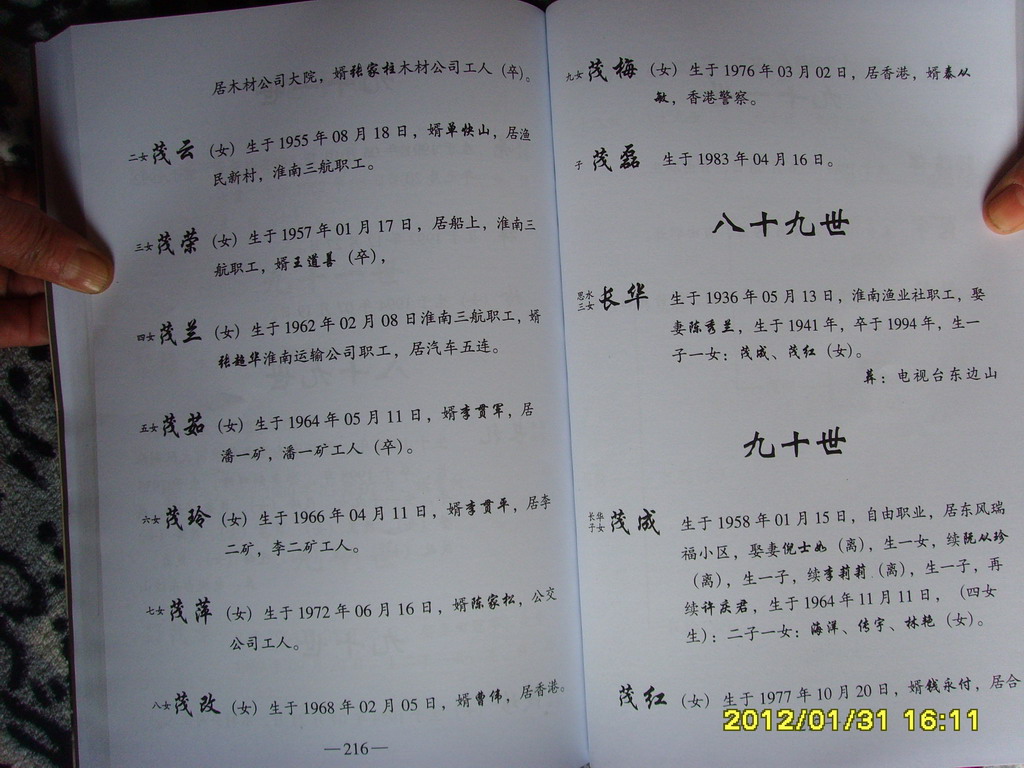 居木材公司大院，婿张家柱木材公司工人（卒）。
二女 茂云 （女）生于1955年08月18日，婿单快山，居渔
民新村，淮南三航职工。
三女 茂荣 （女）生于1957年01月17日，居船上，淮南三
航职工，婿王道喜（卒），
四女 茂兰 （女）生于1962年02月08日淮南三航职工，婿
张超华淮南运输公司职工，居汽车五连。
五女 茂茹 （女）生于1964年05月11日，婿李贯军，居
潘一矿，潘一矿工人（卒）。
六女 茂玲 （女）生于1966年04月11日，婿李贯平，居李
二矿，李二矿工人。
七女 茂萍 （女）生于1972年06月16日，婿陈家松，公交
公司工人。
八女 茂改 （女）生于1968年02月05日，婿曹伟，居香港。
—216—
九女 茂梅 （女）生于1976年03月02日，居香港，婿秦从
敏，香港警察。
子 茂磊 生于1983年04月16日。
八十九世
思水
三女 长华 生于1936年05月13日，淮南渔业社职工，娶
妻陈秀兰，生于1941年，卒于1994年，生一
子一女：茂成、茂红（女）。
葬：电视台东边山
九十世
长华
子女 茂成 生于1958年01月15日，自由职业，居东风瑞
福小区，娶妻倪士如（离），生一女，续阮从珍
（离），生一子，续李莉莉（离），生一子，再
续许庆君，生于1964年11月11日，（四女
生）：二子一女：海洋、传宇、林艳（女）。
茂红 （女）生于1977年10月20日，婿钱永付，居合
2012/01/31 16:11